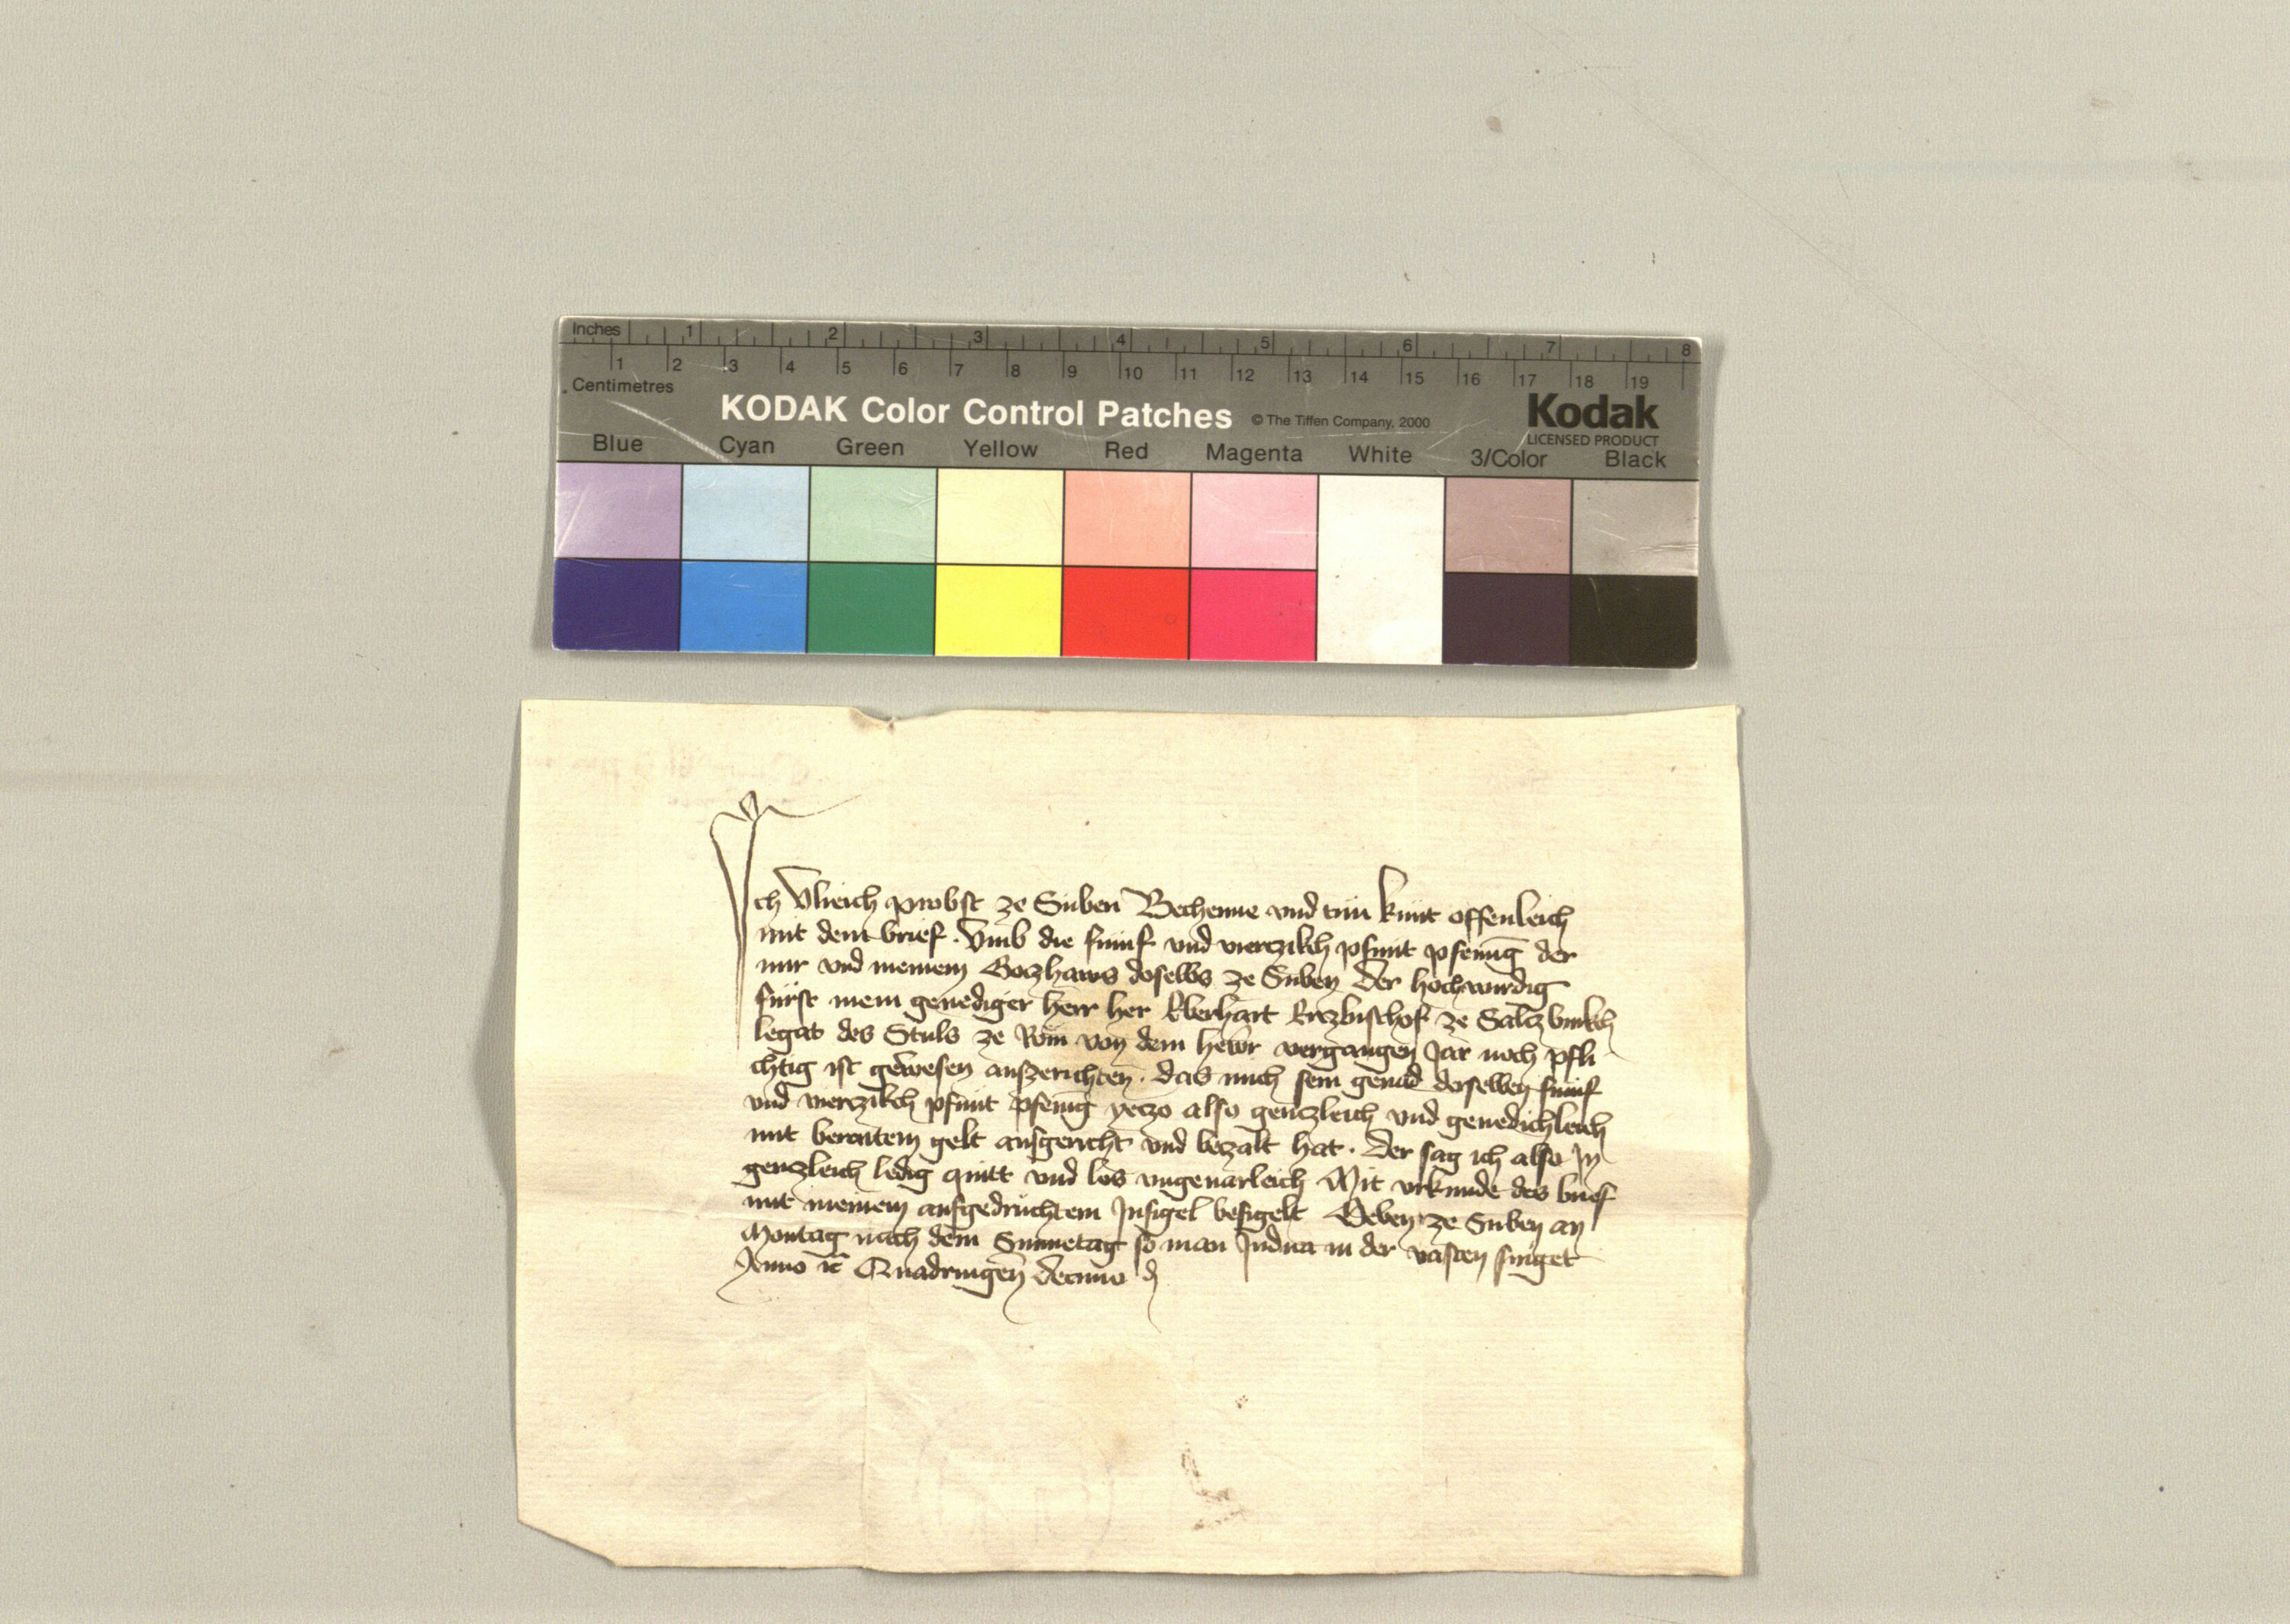 Inches 1 2 3 4 5 6 7 8
1 2 3 4 5 6 7 8 9 10 11 12 13 14 15 16 17 18 19
Centimetres
KODAK Color Control Patches © The Tiffen Company, 2000 Kodak
LICENSED PRODUCT
Blue Cyan Green Yellow Red Magenta White 3/Color Black
Ich Vlreich probst ze Suben Bechenne vnd tun kunt offenleich
mit dem brief . Vmb die fumf vnd vierczikch pfunt pfenīg der
mir vnd meinem Goczhaws doselbs ze Suben der hochwirdig
fürst mein genediger herr her Eberhart Erczbischof ze Salczburkch
legat des Stuls ze Rom von dem hewr vergangen Jar noch pfli
chtig ist gewesen auszerichten . das mich sein genad derselben fumf
vnd vierczikch pfunt pfenīg yeczo also genczleich vnd genedichleich
mit beraitem gelt ausgericht vnd beczalt hat . Der sag ich also In
genczleich ledig quitt vnd los vngeuarleich Mit vrkunde des brief
mit meinem aufgedrucktem Insigel besigelt Geben ze Suben an
Montag nach dem Sunnetag so man Judica in der vasten singet
Anno ꝛc Quadringen̄ decimo